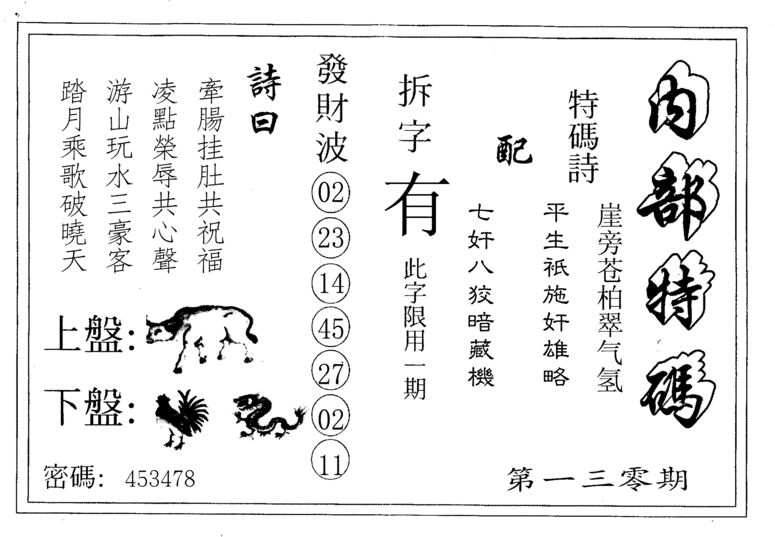 內部特碼
特碼詩
崖旁苍柏翠气氢
平生衹施奸雄略
配
七奸八狡暗藏機
拆字
有
此字限用一期
發財波
02
23
14
45
27
02
11
詩曰
牽腸挂肚共祝福
凌點榮辱共心聲
游山玩水三豪客
踏月乘歌破曉天
上盤:
下盤:
密碼: 453478
第一三零期